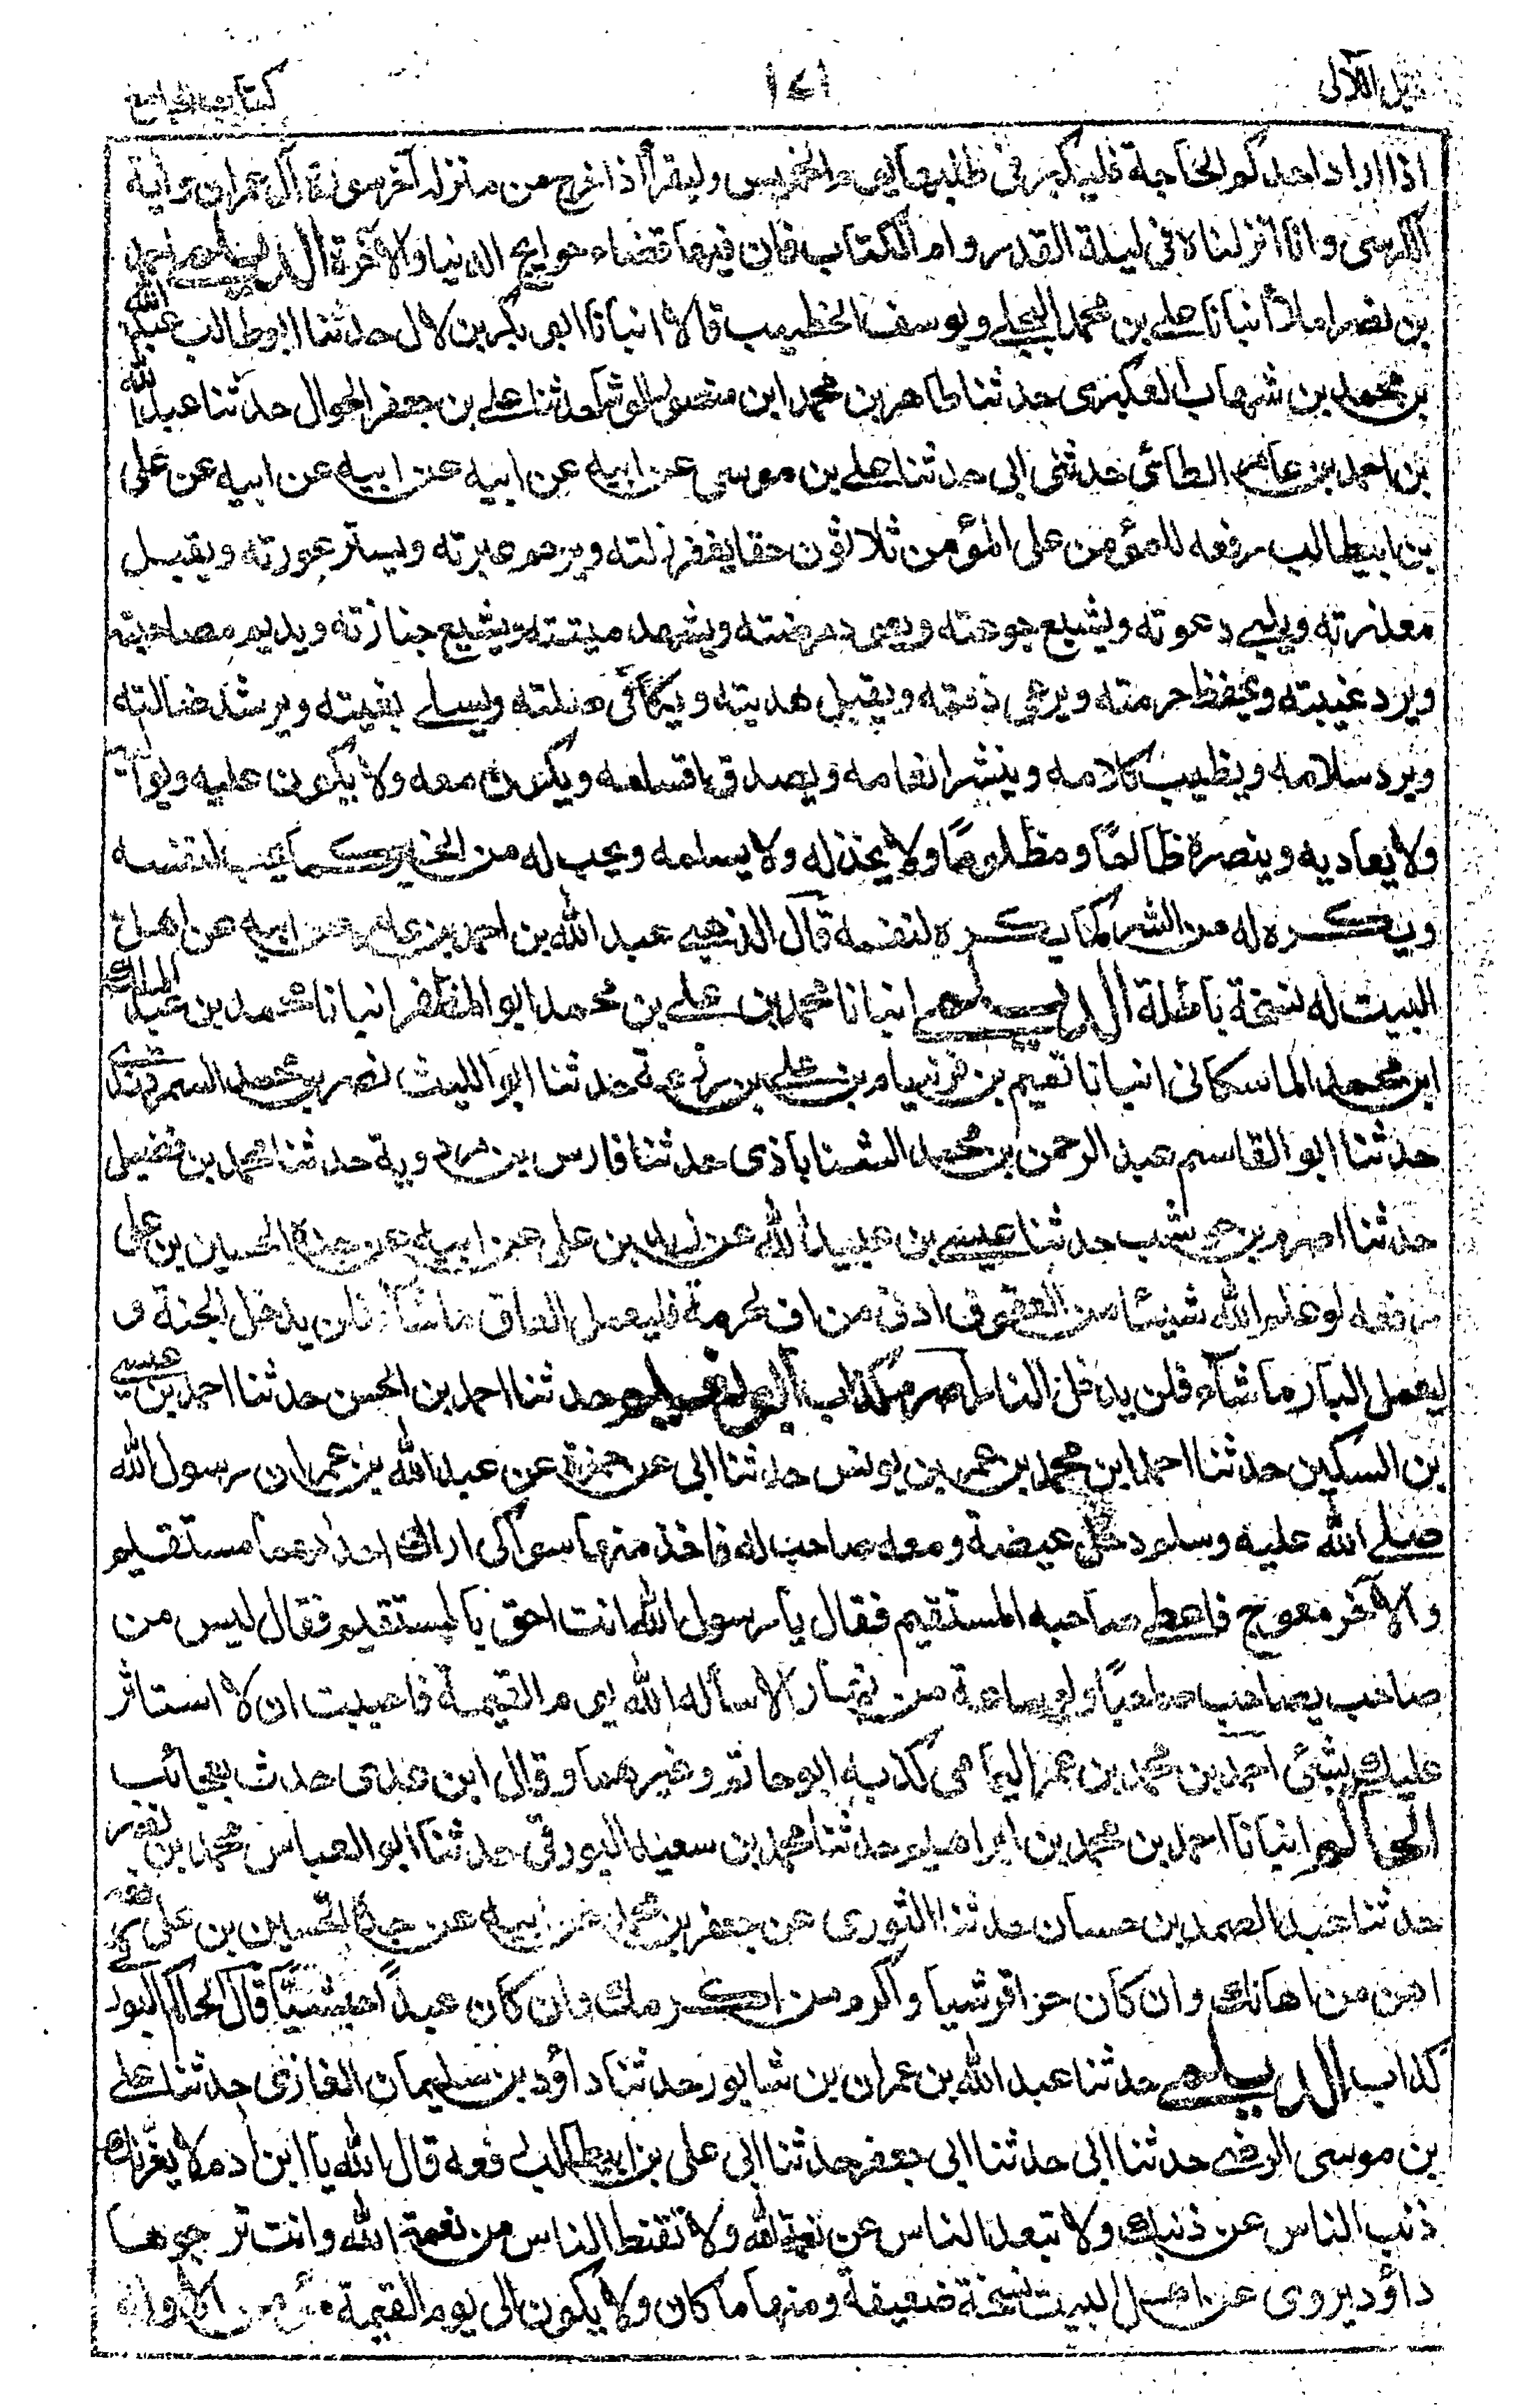 ذيل اللآلى ١٤١ كتاب الجامع
اذا اراد احدكم الحاجة فليبكر فى طلبها يوم الخميس وليقرأ اذا خرج من منزله آخر سورة آل عمران واية
الكرسى وانا انزلناه فى ليلة القدر وام الكتاب فان فيها قضاء حوايج الدنيا والآخرة الديلمى
بن نصر املاً انبانا على بن محمد البجلى ويوسف الخطيب قالا انبانا ابو بكر بن لال حدثنا ابو طالب عبد الله
بن محمد بن شهاب العكبرى حدثنا طاهر بن محمد ابن حدثنا على بن جعفر الجوال حدثنا عبد الله
بن احمد بن عامر الطائى حدثنى ابى حدثنا على بن موسى عن ابيه عن ابيه عن ابيه عن ابيه عن على
بن ابيطالب رفعه للمؤمن على المؤمن ثلاثون حقا يغفر زلته ويرحم عبرته ويستر عورته ويقبل
معذرته ويلبى دعوته ويشبع جوعته ويعود مرضته ويشهد ميتته ويشيع جنازته ويديم مصاحبته
ويرد غيبته ويحفظ حرمته ويرعى ذمته ويقبل هديته ويكافى صلته ويرشد ضالته
ويرد سلامه ويطيب كلامه وينشر انعامه ويصدق اقسامه ويكون معه ولا يكون عليه ويواليه
ولا يعاديه وينصره ظالمًا ومظلومًا ولا يخذله ولا يسلمه ويحب له من الخير كما يحب لنفسه
ويكره له من الشر كما يكره لنفسه قال الذهبى عبد الله بن احمد بن عامر عن ابيه عن اهل
البيت له نسخة باطلة الديلمى انبانا محمد بن على بن محمد ابو المظفر انبانا محمد بن عبد الملك
ابن محمد الماسكانى انبانا تميم بن بن على بن زرعة حدثنا ابو الليث نصر بن محمد السمرقندى
حدثنا ابو القاسم عبد الرحمن بن محمد الشناباذى حدثنا فارس بن مردوية حدثنا محمد بن فضيل
حدثنا اصرم بن حوشب حدثنا عيسى بن عبيد الله عن زيد بن على عن ابيه عن جده الحسين بن على
رفعه لو علم الله شيئا من العقوق ادنى من اف لحرمه فليعمل العاق ما شآء فلن يدخل الجنة و
ليعمل البار ما شآء فلن يدخل النار اصرم كذاب ابو نعيم حدثنا احمد بن الحسن حدثنا احمد بن عيسى
بن السكين حدثنا احمد ابن محمد بن عمر بن يونس حدثنا ابى عن حمزة عن عبد الله بن عمر ان رسول الله
صلى الله عليه وسلم دخل غيضة ومعه صاحب له فاخذ منها سواكى اراك احدهما مستقيم
والآخر معوج فاعطى صاحبه المستقيم فقال يا رسول الله انت احق بالمستقيم فقال ليس من
صاحب يصاحب صاحبًا ولو ساعة من نهار الا سأله الله يوم القيمة فاحببت ان لا استاثر
عليك بشئ احمد بن محمد بن عمر اليمامى كذبه ابو حاتم وغيرهما وقال ابن عدى حدث بعجائب
الحاكم انبانا احمد بن محمد بن ابراهيم حدثنا محمد بن سعيد البورقى حدثنا ابو العباس محمد بن
حدثنا عبد الصمد بن حسان حدثنا الثورى عن جعفر بن محمد عن ابيه عن جده الحسين بن على
اهن من اهانك وان كان حرا قرشيا واكرم من اكرمك وان كان عبداً حبشيًّا قال الحاكم
كذاب الديلمى حدثنا عبد الله بن عمران بن شابور حدثنا داؤد بن سليمان الغازى حدثنا على
بن موسى الرضى حدثنا ابى حدثنا ابى جعفر حدثنا ابى على بن ابيطالب رفعه قال الله يا ابن آدم لا يغرنك
ذنب الناس عن ذنبك ولا تبعد الناس عن نعمة الله ولا تقنط الناس من نعمة الله وانت ترجوها
داؤد يروى عن اهل البيت نسخة ضعيفة ومنها ما كان ولا يكون الى يوم القيمة